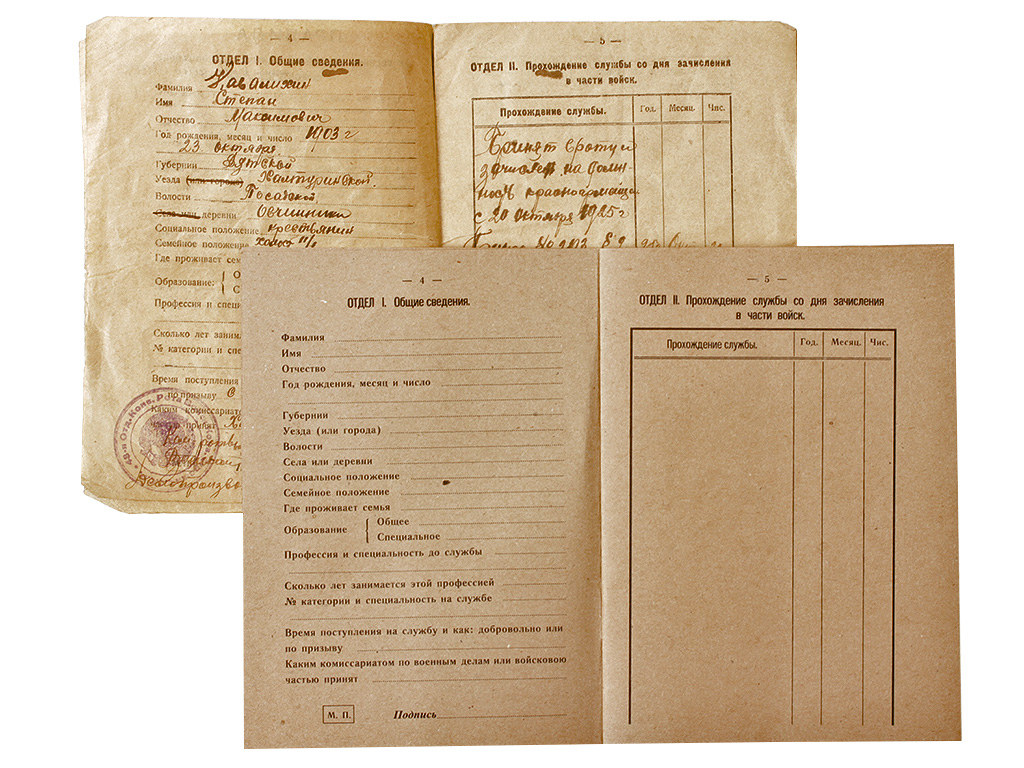 — 4 —
ОТДЕЛ I. Общие сведения.
Фамилия Кавалихин
Имя Степан
Отчество Максимович
Год рождения, месяц и число 1903 г
23 октября
Губернии Вятской
Уезда (или города) Халтуринской
Волости Посадской
Села или деревни Овчинники
Социальное положение крестьянин
Семейное положение холост
Где проживает сем
Образование:
Профессия и специ
Сколько лет занима
№ категории и спе
Время поступления
по призыву С
Каким комиссариато
— 5 —
ОТДЕЛ II. Прохождение службы со дня зачисления
в части войск.
Прохождение службы. Год. Месяц. Чис.
Принят в роту и
зачислен на долж-
ность красноармейца
с 20 октября 1925 г
— 4 —
ОТДЕЛ I. Общие сведения.
Фамилия
Имя
Отчество
Год рождения, месяц и число
Губернии
Уезда (или города)
Волости
Села или деревни
Социальное положение
Семейное положение
Где проживает семья
Образование { Общее
Специальное
Профессия и специальность до службы
Сколько лет занимается этой профессией
№ категории и специальность на службе
Время поступления на службу и как: добровольно или
по призыву
Каким комиссариатом по военным делам или войсковою
частью принят
М. П. Подпись
— 5 —
ОТДЕЛ II. Прохождение службы со дня зачисления
в части войск.
Прохождение службы. Год. Месяц. Чис.